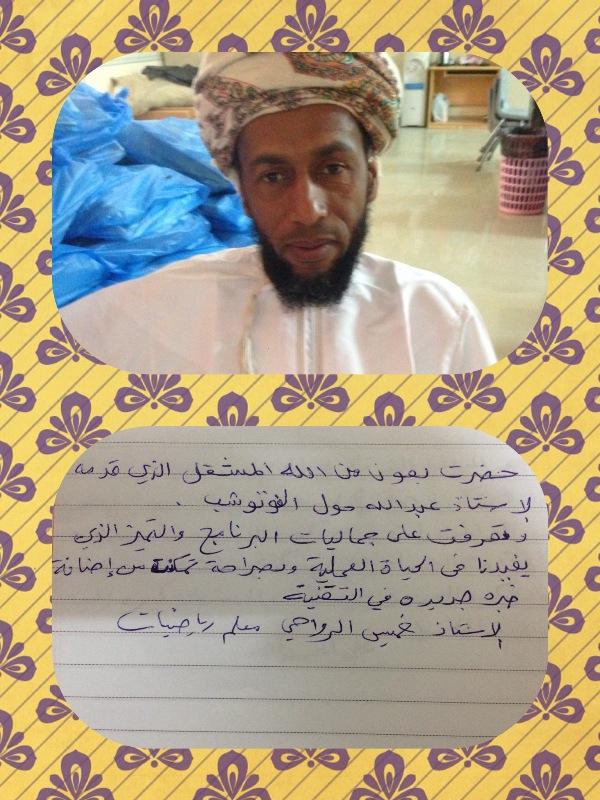 حضرت بعون من الله المشغل الذي قدمه
الاستاذ عبدالله حول الفوتوشب .
وتعرفت على جماليات البرنامج والتميز الذي
يفيدنا في الحياة العملية وبصراحة تمكنت من إضافة
خبره جديده في التقنية
الاستاذ خميس الرواحي معلم رياضيات